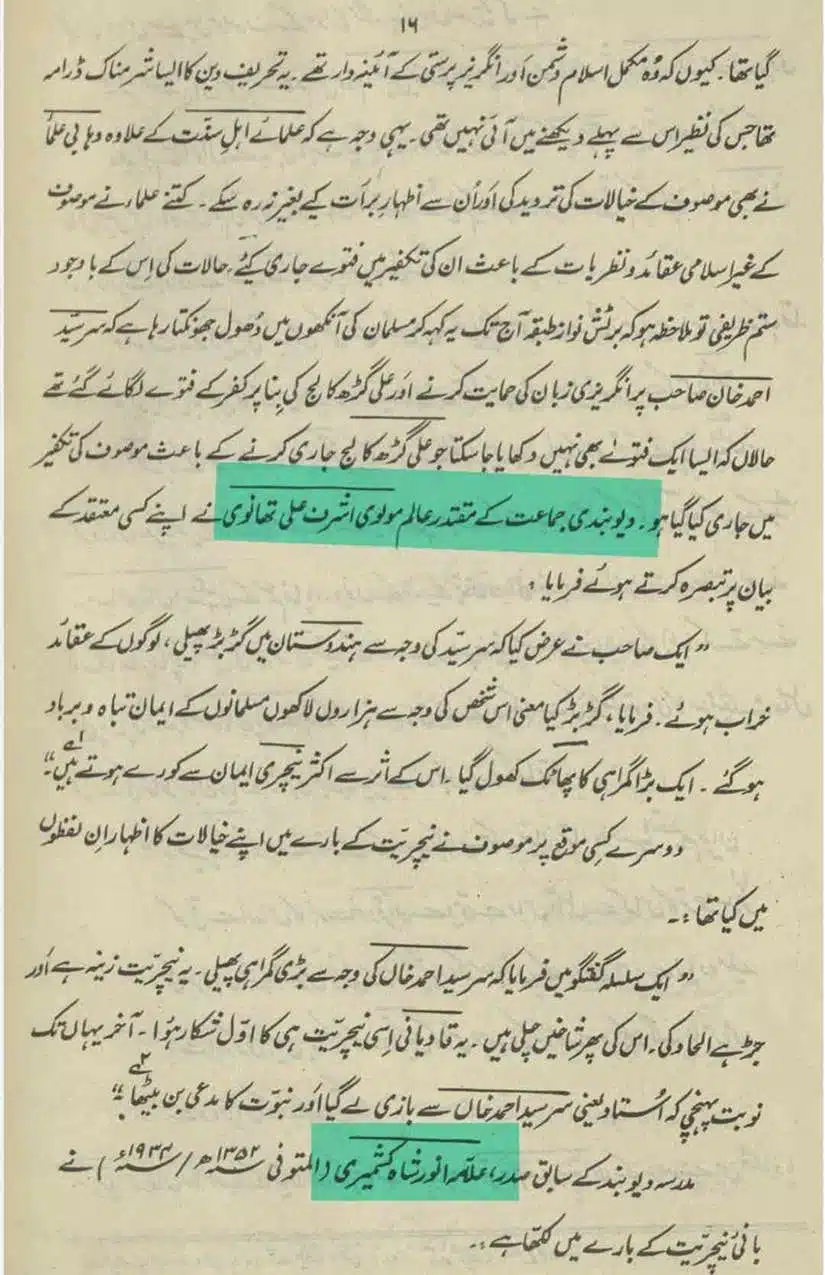 ۱۶
گیا تھا۔ کیوں کہ وُہ مکمل اسلام دشمن اَور انگریز پرستی کے آئینہ دار تھے۔ یہ تحریفِ دین کا ایسا شرمناک ڈرامہ
تھا جس کی نظیر اس سے پہلے دیکھنے میں آئی نہیں تھی۔ یہی وجہ ہے کہ علمائے اہلِ سنّت کے علاوہ وہابی علماً
نے بھی موصوف کے خیالات کی تردید کی اَور اُن سے اظہارِ برأت کیے بغیر نہ رہ سکے۔ کتنے علماء نے موصوف
کے غیر اسلامی عقائد و نظریات کے باعث ان کی تکفیر میں فتوے جاری کیئے۔ حالات کی اِس کے باوجود
ستم ظریفی تو ملاحظہ ہو کہ برٹش نواز طبقہ آج تک یہ کہہ کر مسلمان کی آنکھوں میں دُھول جھونکتا رہا ہے کہ سرسیّد
احمد خان صاحب پر انگریزی زبان کی حمایت کرنے اَور علی گڑھ کالج کی بِنا پر کفر کے فتوے لگائے گئے تھے
حالاں کہ ایسا ایک فتوےٰ بھی نہیں دکھایا جا سکتا جو علی گڑھ کالج جاری کرنے کے باعث موصوف کی تکفیر
میں جاری کیا گیا ہو۔ دیوبندی جماعت کے مقتدر عالم مولوی اشرف علی تھانوی نے اپنے کسی معتقد کے
بیان پر تبصرہ کرتے ہوئے فرمایا :
” ایک صاحب نے عرض کیا کہ سرسیّد کی وجہ سے ہندوستان میں گڑبڑ پھیلی ، لوگوں کے عقائد
خراب ہوئے۔ فرمایا، گڑبڑ کیا معنی اس شخص کی وجہ سے ہزاروں لاکھوں مسلمانوں کے ایمان تباہ و برباد
ہو گئے۔ ایک بڑا گمراہی کا پھاٹک کھول گیا۔ اس کے اثر سے اکثر نیچری ایمان سے کورے ہوتے ہیں۔“ ۱ے
دوسرے کِسی موقع پر موصوف نے نیچریّت کے بارے میں اپنے خیالات کا اظہار اِن لفظوں
میں کیا تھا :۔
” ایک سلسلہ گفتگو میں فرمایا کہ سرسید احمد خاں کی وجہ سے بڑی گمراہی پھیلی۔ یہ نیچریّت زینہ ہے اَور
جڑ ہے الحاد کی۔ اس کی پھر شاخیں چلی ہیں۔ یہ قادیانی اِسی نیچریّت ہی کا اوّل شکار ہُوا۔ آخر یہاں تک
نوبت پہنچی کہ اُستاد یعنی سرسید احمد خاں سے بازی لے گیا اَور نبوّت کا مدعی بن بیٹھا۔“ ۲ے
مدرسہ دیوبند کے سابق صدر، علامہ انور شاہ کشمیری (المتوفی ۱۳۵۲ھ/۱۹۳۳ء) نے
بانیٔ نیچریّت کے بارے میں لکھا ہے :۔